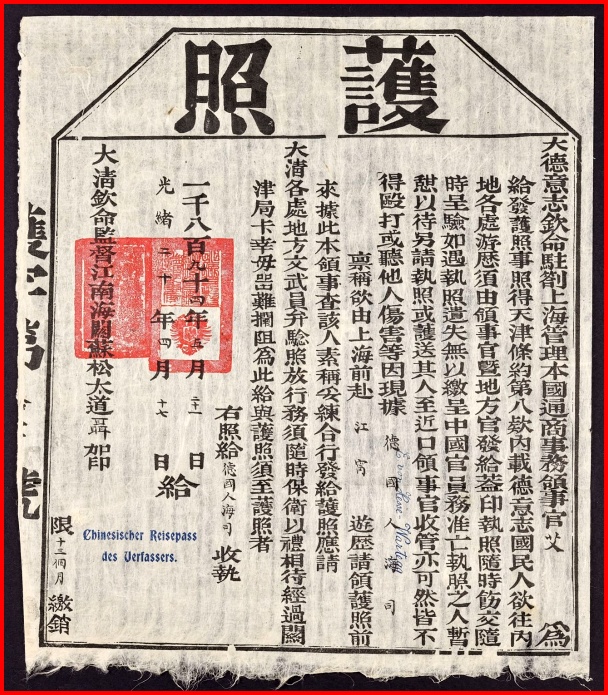 護照
大德意志欽命駐劄上海管理本國通商事務領事官 艾 為
給發護照事照得天津條約第八欵內載德意志國民人欲往內
地各處游歷須由領事官暨地方官發給蓋印執照隨時飭交隨
時呈驗如遇執照遺失無以繳呈中國官員務准亡執照之人暫
憇以待另請執照或護送其人至近口領事官收管亦可然皆不
得毆打或聽他人傷害等因現據 德國人海司
稟稱欲由上海前赴 江甯 遊歷請領護照前
來據此本領事查該人素稱妥練合行發給護照應請
大清各處地方文武員弁驗照放行務須隨時保衛以禮相待經過關
津局卡幸毋留難攔阻為此給與護照須至護照者
右照給 德國人海司 收執
一千八百九十四年五月二十一日
光緒二十年四月十七日
給
大清欽命監督江南海關蘇松太道聶 加印
限十三個月 繳銷
Chinesischer Reisepass
des Verfassers.